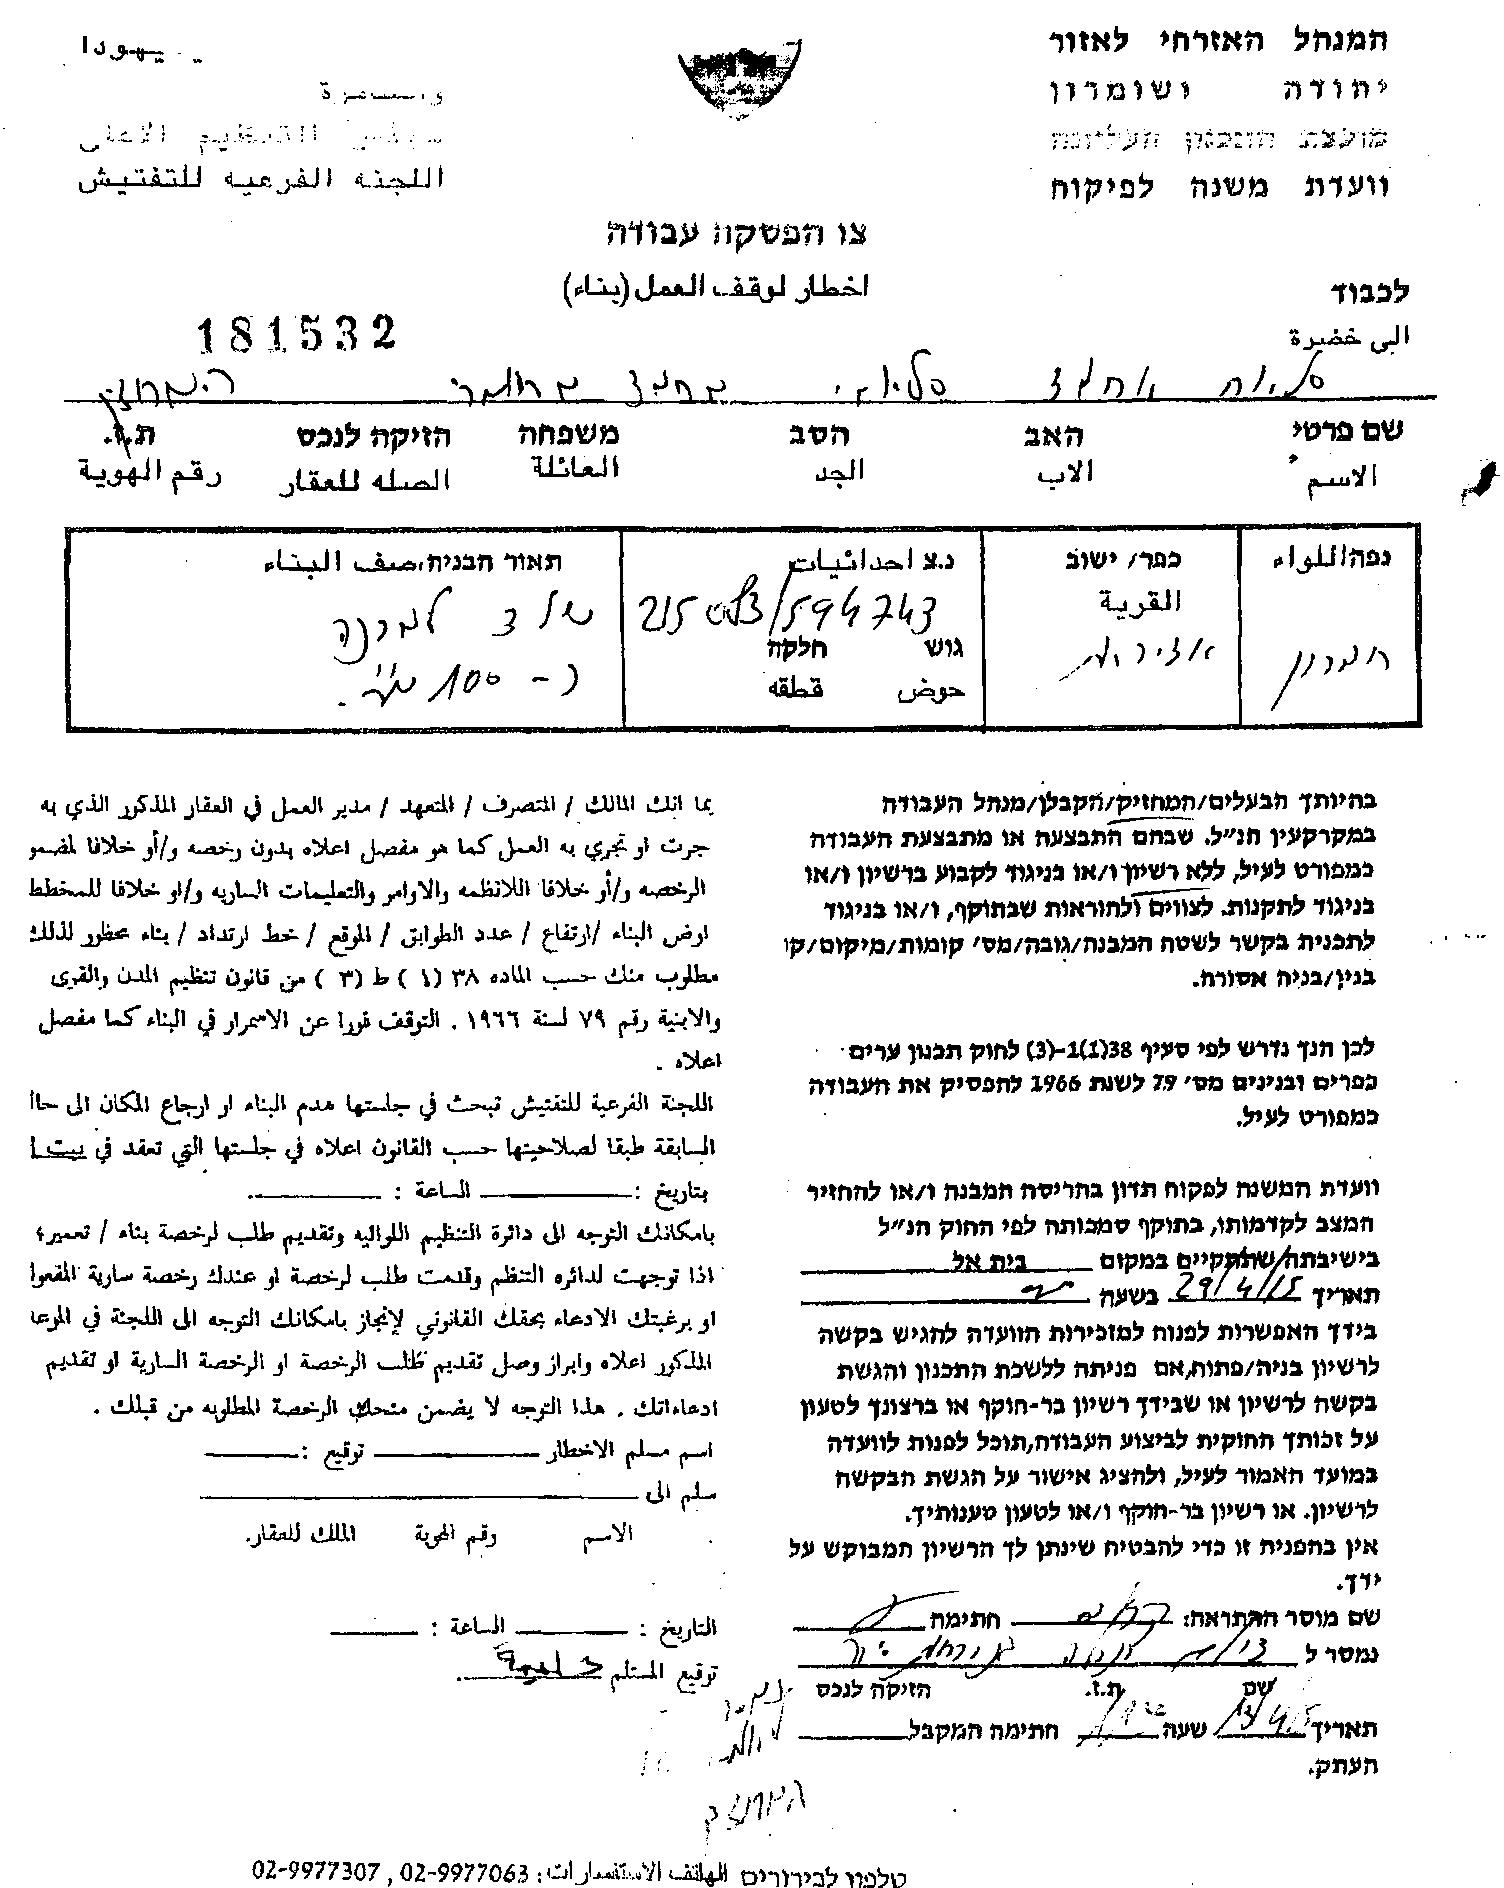 המנהל האזרחי לאזור
יהודה ושומרון
מועצת התכנון העליונה
וועדת משנה לפיקוח
يهودا
والسامرة
مجلس التنظيم الاعلى
اللجنه الفرعيه للتفتيش
צו הפסקת עבודה
اخطار لوقف العمل (بناء)
לכבוד
الى حضرة
181532
שם פרטי האב הסב משפחה הזיקה לנכס ת.ז.
الاسم الاب الجد العائلة الصله للعقار رقم الهوية
נפה اللواء
חברון
כפר/ ישוב
القرية
נ.צ احداثيات
594743
גוש חלקה
حوض قطقه
תאור הבניה, صنف البناء
שלד למבנה
כ- 100 מ"ר.
בהיותך הבעלים/המחזיק/הקבלן/מנהל העבודה
במקרקעין הנ"ל. שבהם התבצעה או מתבצעת העבודה
כמפורט לעיל, ללא רשיון ו/או בניגוד לקבוע ברשיון ו/או
בניגוד לתקנות. לצווים ולהוראות שבתוקף, ו/או בניגוד
לתכנית בקשר לשטח המבנה/גובה/מס' קומות/מיקום/קו
בנין/בניה אסורה.
לכן הנך נדרש לפי סעיף 38(1)1-(3) לחוק תכנון ערים
כפרים ובנינים מס' 79 לשנת 1966 להפסיק את העבודה
כמפורט לעיל.
וועדת המשנה לפקוח תדון בהריסת המבנה ו/או להחזיר
המצב לקדמותו, בתוקף סמכותה לפי החוק הנ"ל
בישיבתה שתתקיים במקום בית אל
תאריך 29/4/15 בשעה
בידך האפשרות לפנות למזכירות הוועדה להגיש בקשה
לרשיון בניה/פתוח,אם פניתה ללשכת התכנון והגשת
בקשה לרשיון או שבידך רשיון בר-תוקף או ברצונך לטעון
על זכותך החוקית לביצוע העבודה,תוכל לפנות לוועדה
במועד האמור לעיל, ולהציג אישור על הגשת הבקשה
לרשיון. או רשיון בר-תוקף ו/או לטעון טענותיך.
אין בהפניה זו כדי להבטיח שינתן לך הרשיון המבוקש על
ידך.
שם מוסר ההתראה: חתימה
נמסר ל
שם ת.ז. הזיקה לנכס
תאריך שעה חתימת המקבל
העתק.
بما انك المالك / المتصرف / المتعهد / مدير العمل في العقار المذكور الذي به
جرت او تجري به العمل كما هو مفصل اعلاه بدون رخصه و/أو خلافا لمضمو
الرخصه و/أو خلافا اللانظمه والاوامر والتعليمات الساريه و/او خلافا للمخطط
ارض البناء /ارتفاع / عدد الطوابق / الموقع / خط ارتداد / بناء محظور لذلك
مطلوب منك حسب الماده ٣٨ (١ ) ط (٣ ) من قانون تنظيم المدن والقرى
والابنية رقم ٧٩ لسنة ١٩٦٦ . التوقف فورا عن الاسمرار في البناء كما مفصل
اعلاه .
اللجنة الفرعية للتفتيش تبحث في جلستها هدم البناء او ارجاع المكان الى حاا
السابقة طبقا لصلاحيتها حسب القانون اعلاه في جلستها التي تعقد في بيت ا
بتاريخ : الساعة : .
بامكانك التوجه الى دائرة التنظيم اللوائيه وتقديم طلب لرخصة بناء / تعمير؛
اذا توجهت لدائره التنظم وقدمت طلب لرخصة او عندك رخصة سارية المفعوا
او برغبتك الادعاء بحقك القانوني لإنجاز بامكانك التوجه الى اللجنة في الموعا
المذكور اعلاه وابراز وصل تقديم طلب الرخصة او الرخصة السارية او تقديم
ادعاءاتك . هذا التوجه لا يضمن منحك الرخصة المطلوبه من قبلك .
اسم مسلم الاخطار توقيع :
سلم الى
الاسم رقم الهوية الملك للعقار.
التاريخ : الساعة :
توقيع المستلم
טלפון לבירורים الهاتف الاستفسارات : 02-9977063 , 02-9977307